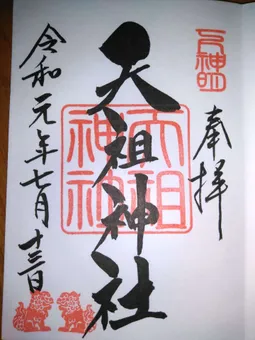 奉拝
天祖神社
天祖神社
令和元年七月十三日